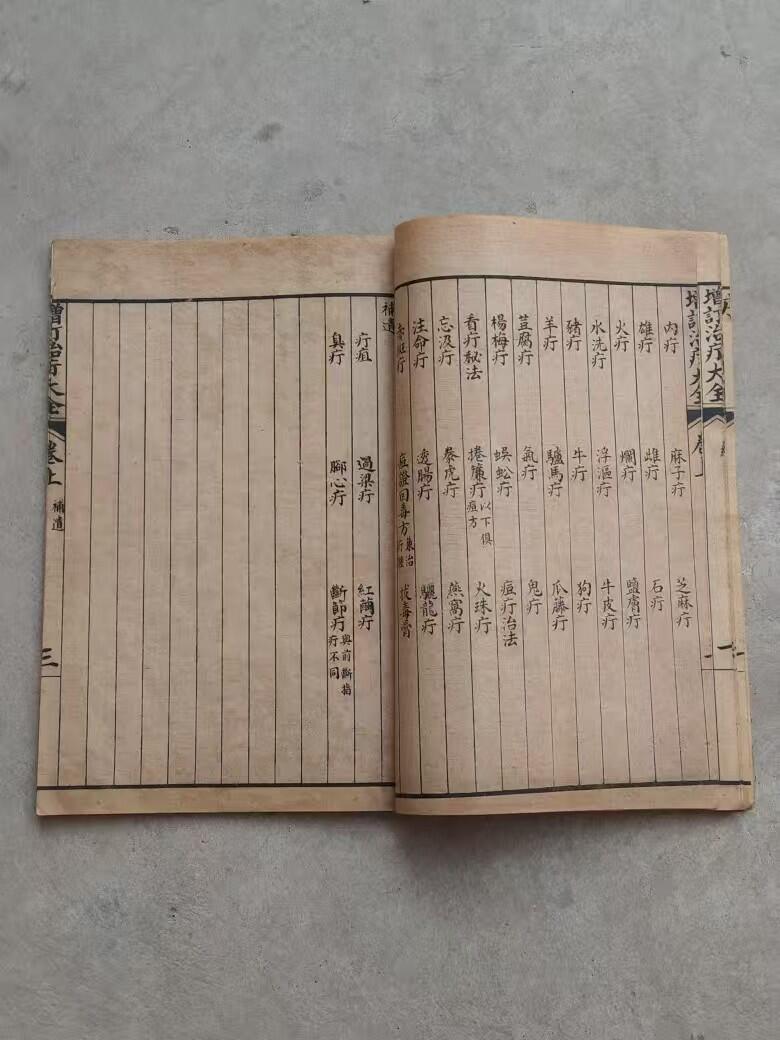 增訂治疔大全
增訂治疔大全 卷上
內疔 麻子疔 芝麻疔
雄疔 雌疔 石疔
火疔 爛疔 鹽膚疔
水洗疔 浮漚疔 牛皮疔
豬疔 牛疔 狗疔
羊疔 驢馬疔 瓜藤疔
荳腐疔 氣疔 鬼疔
楊梅疔 蜈蚣疔 痘疔治法
看疔秘法 捲簾疔以下俱痘方 火珠疔
忘汲疔 泰虎疔 燕窩疔
注命疔 透腸疔 驪龍疔
痘證回毒方兼治疔腫 拔毒膏
補遺
疔疽 過梁疔 紅繭疔
臭疔 腳心疔 斷節疔與前斷指疔不同
增訂治疔大全 卷上 補遺 三